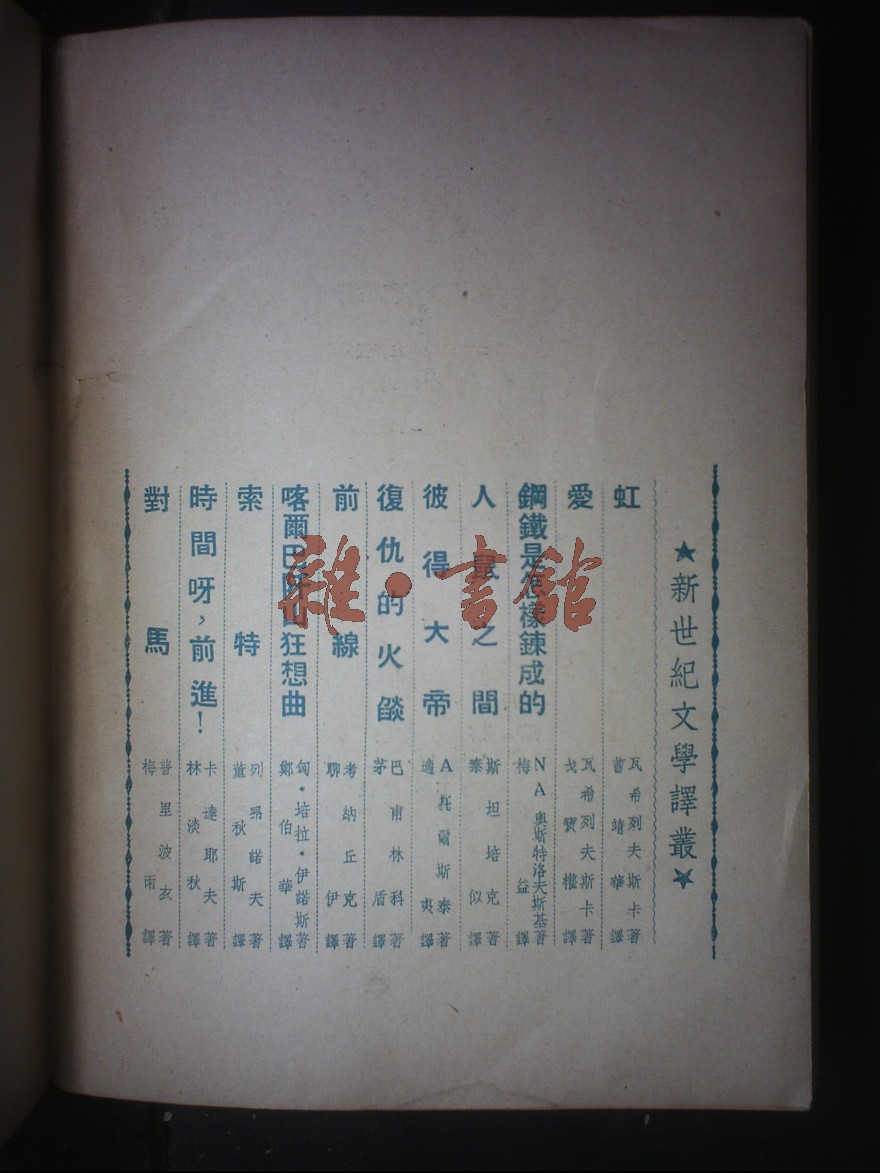 ★新世紀文學譯叢★
虹 瓦希列夫斯卡著 曹靖華譯
愛 瓦希列夫斯卡著 戈寶權譯
鋼鐵是怎樣鍊成的 NA奧斯特洛夫斯基著 梅益譯
人鼠之間 斯坦培克著 秦似譯
彼得大帝 A托爾斯泰著 適夷譯
復仇的火燄 巴甫林科著 茅盾譯
前線 考納丘克著 聊伊譯
喀爾巴阡山狂想曲 匈·培拉·伊諾斯著 鄭伯華譯
索特 列昂諾夫著 董秋斯譯
時間呀，前進！ 卡達耶夫著 林淡秋譯
對馬 普里波衣著 梅雨譯
雜·書館